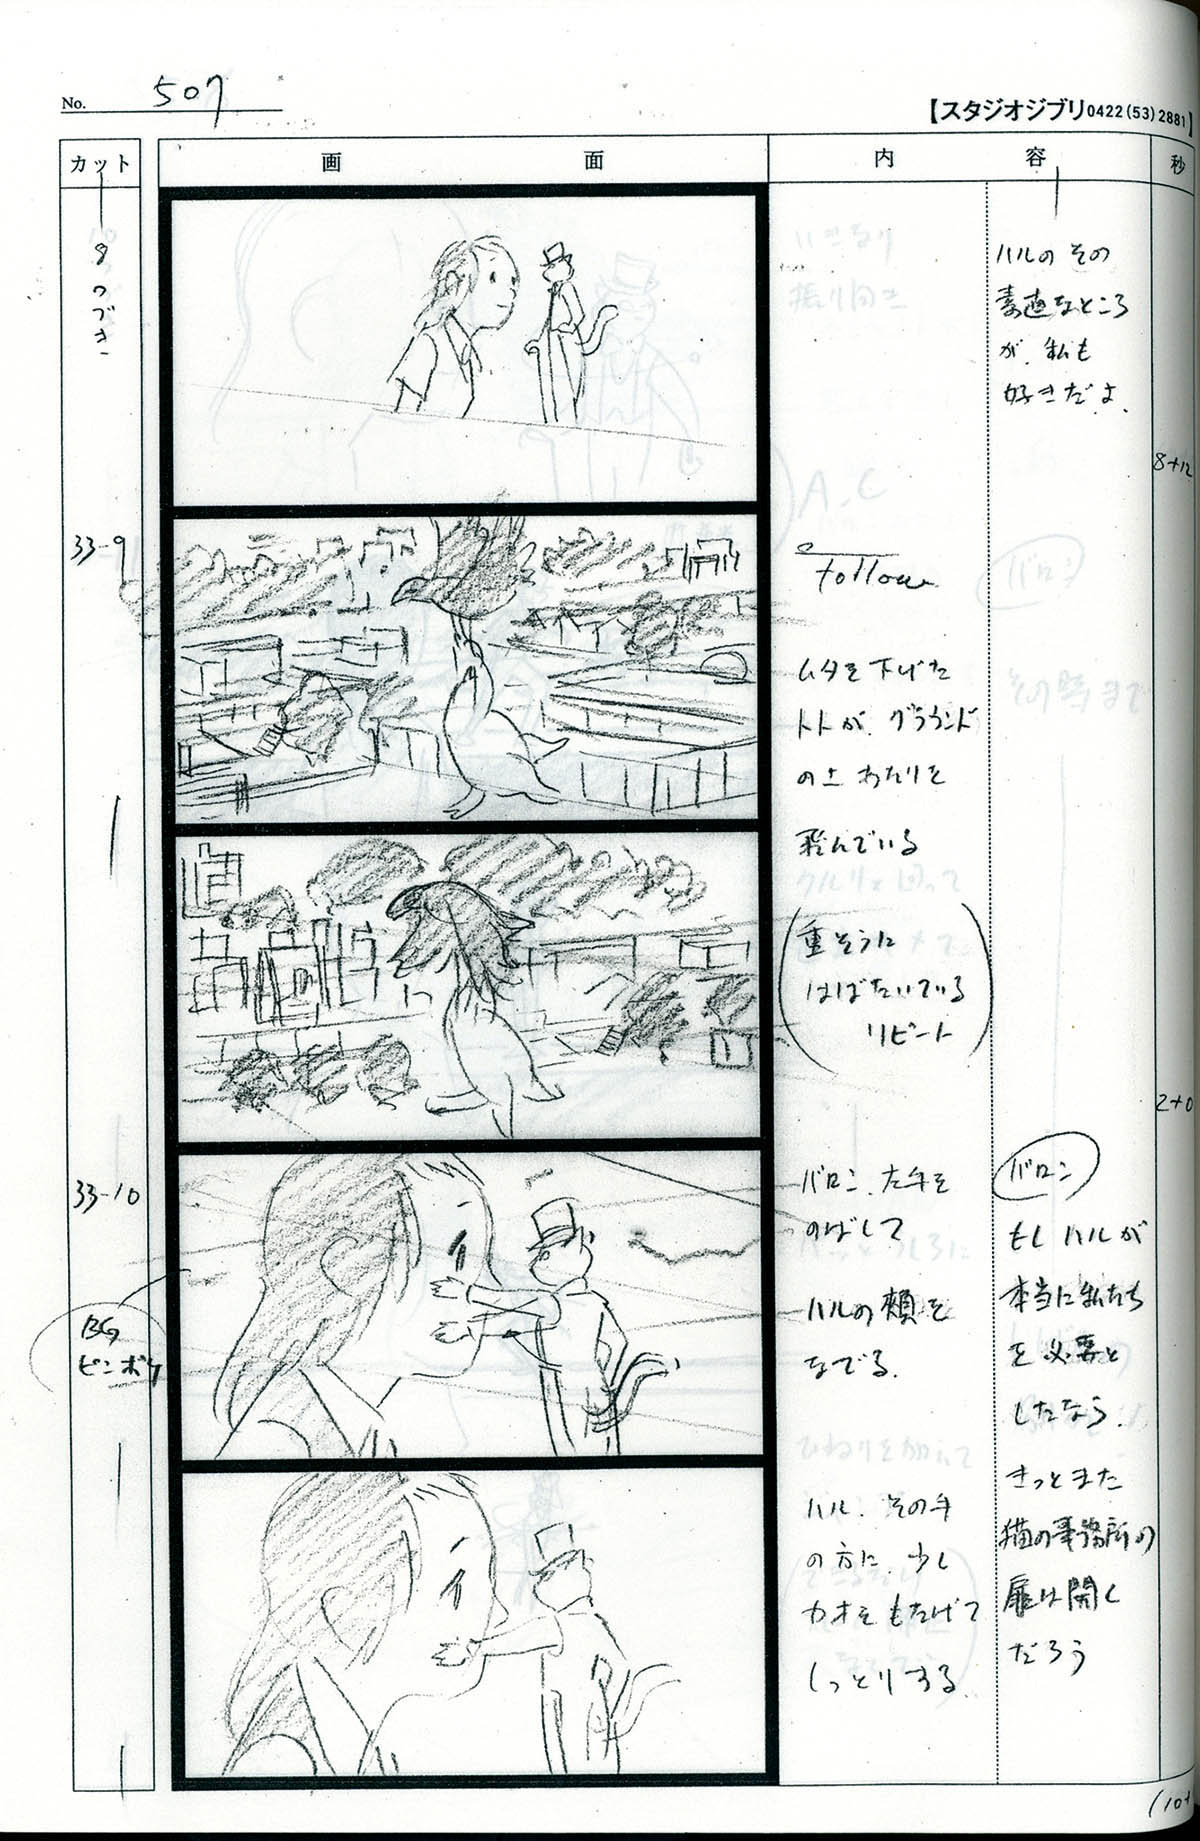 No. 507
【スタジオジブリ0422(53)2881】
カット
画面
内容
秒
8つづき
ハルの その
素直なところ
が、私も
好きだよ。
8+12
33-9
follow
ムタを下げた
トトが、グラウンド
の上あたりを
飛んでいる
(重そうに
はばたいている
リピート)
2+0
33-10
BG
ピンボケ
バロン、左手を
のばして
ハルの頬を
なでる。
ハル、その手
の方に、少し
カオをもたげて
しっとりする。
バロン
もしハルが
本当に私たち
を必要と
したなら、
きっとまた
猫の事務所の
扉は開く
だろう
(10+